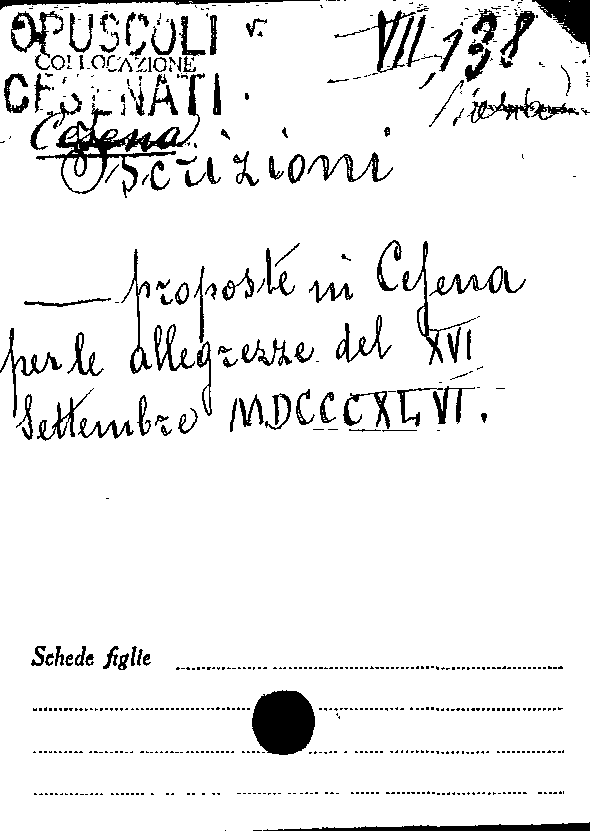 OPUSCOLI v. VII, 138
COLLOCAZIONE
CESENATI.
Cesena
Iscrizioni
— proposte in Cesena
per le allegrezze del XVI
Settembre MDCCCXLVI.
Schede figlie